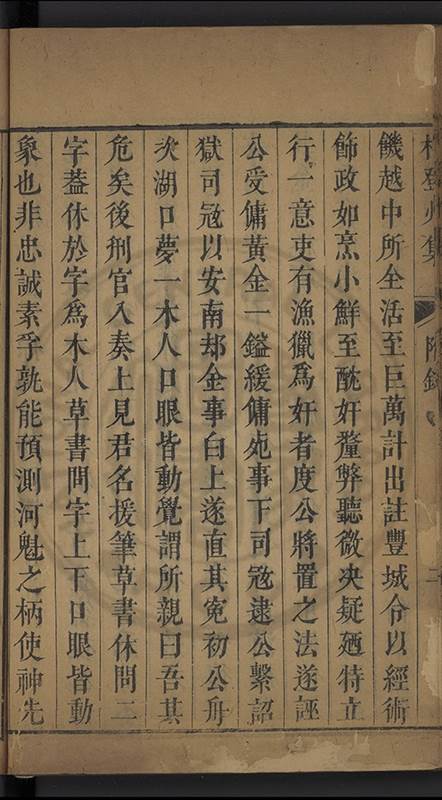 林登州集 附錄 二
饑越中所全活至巨萬計出註豐城令以經術
飾政如烹小鮮至酖奸釐弊聽微决疑廼特立
行一意吏有漁獵爲奸者度公將置之法遂誣
公受傭黃金一鎰緩傭死事下司冦逮公繫詔
獄司冦以安南却金事白上遂直其寃初公舟
次湖口夢一木人口眼皆動覺謂所親曰吾其
危矣後刑官入奏上見君名援筆草書休問二
字葢休於字爲木人草書問字上下口眼皆動
象也非忠誠素孚孰能預測河魁之柄使神先